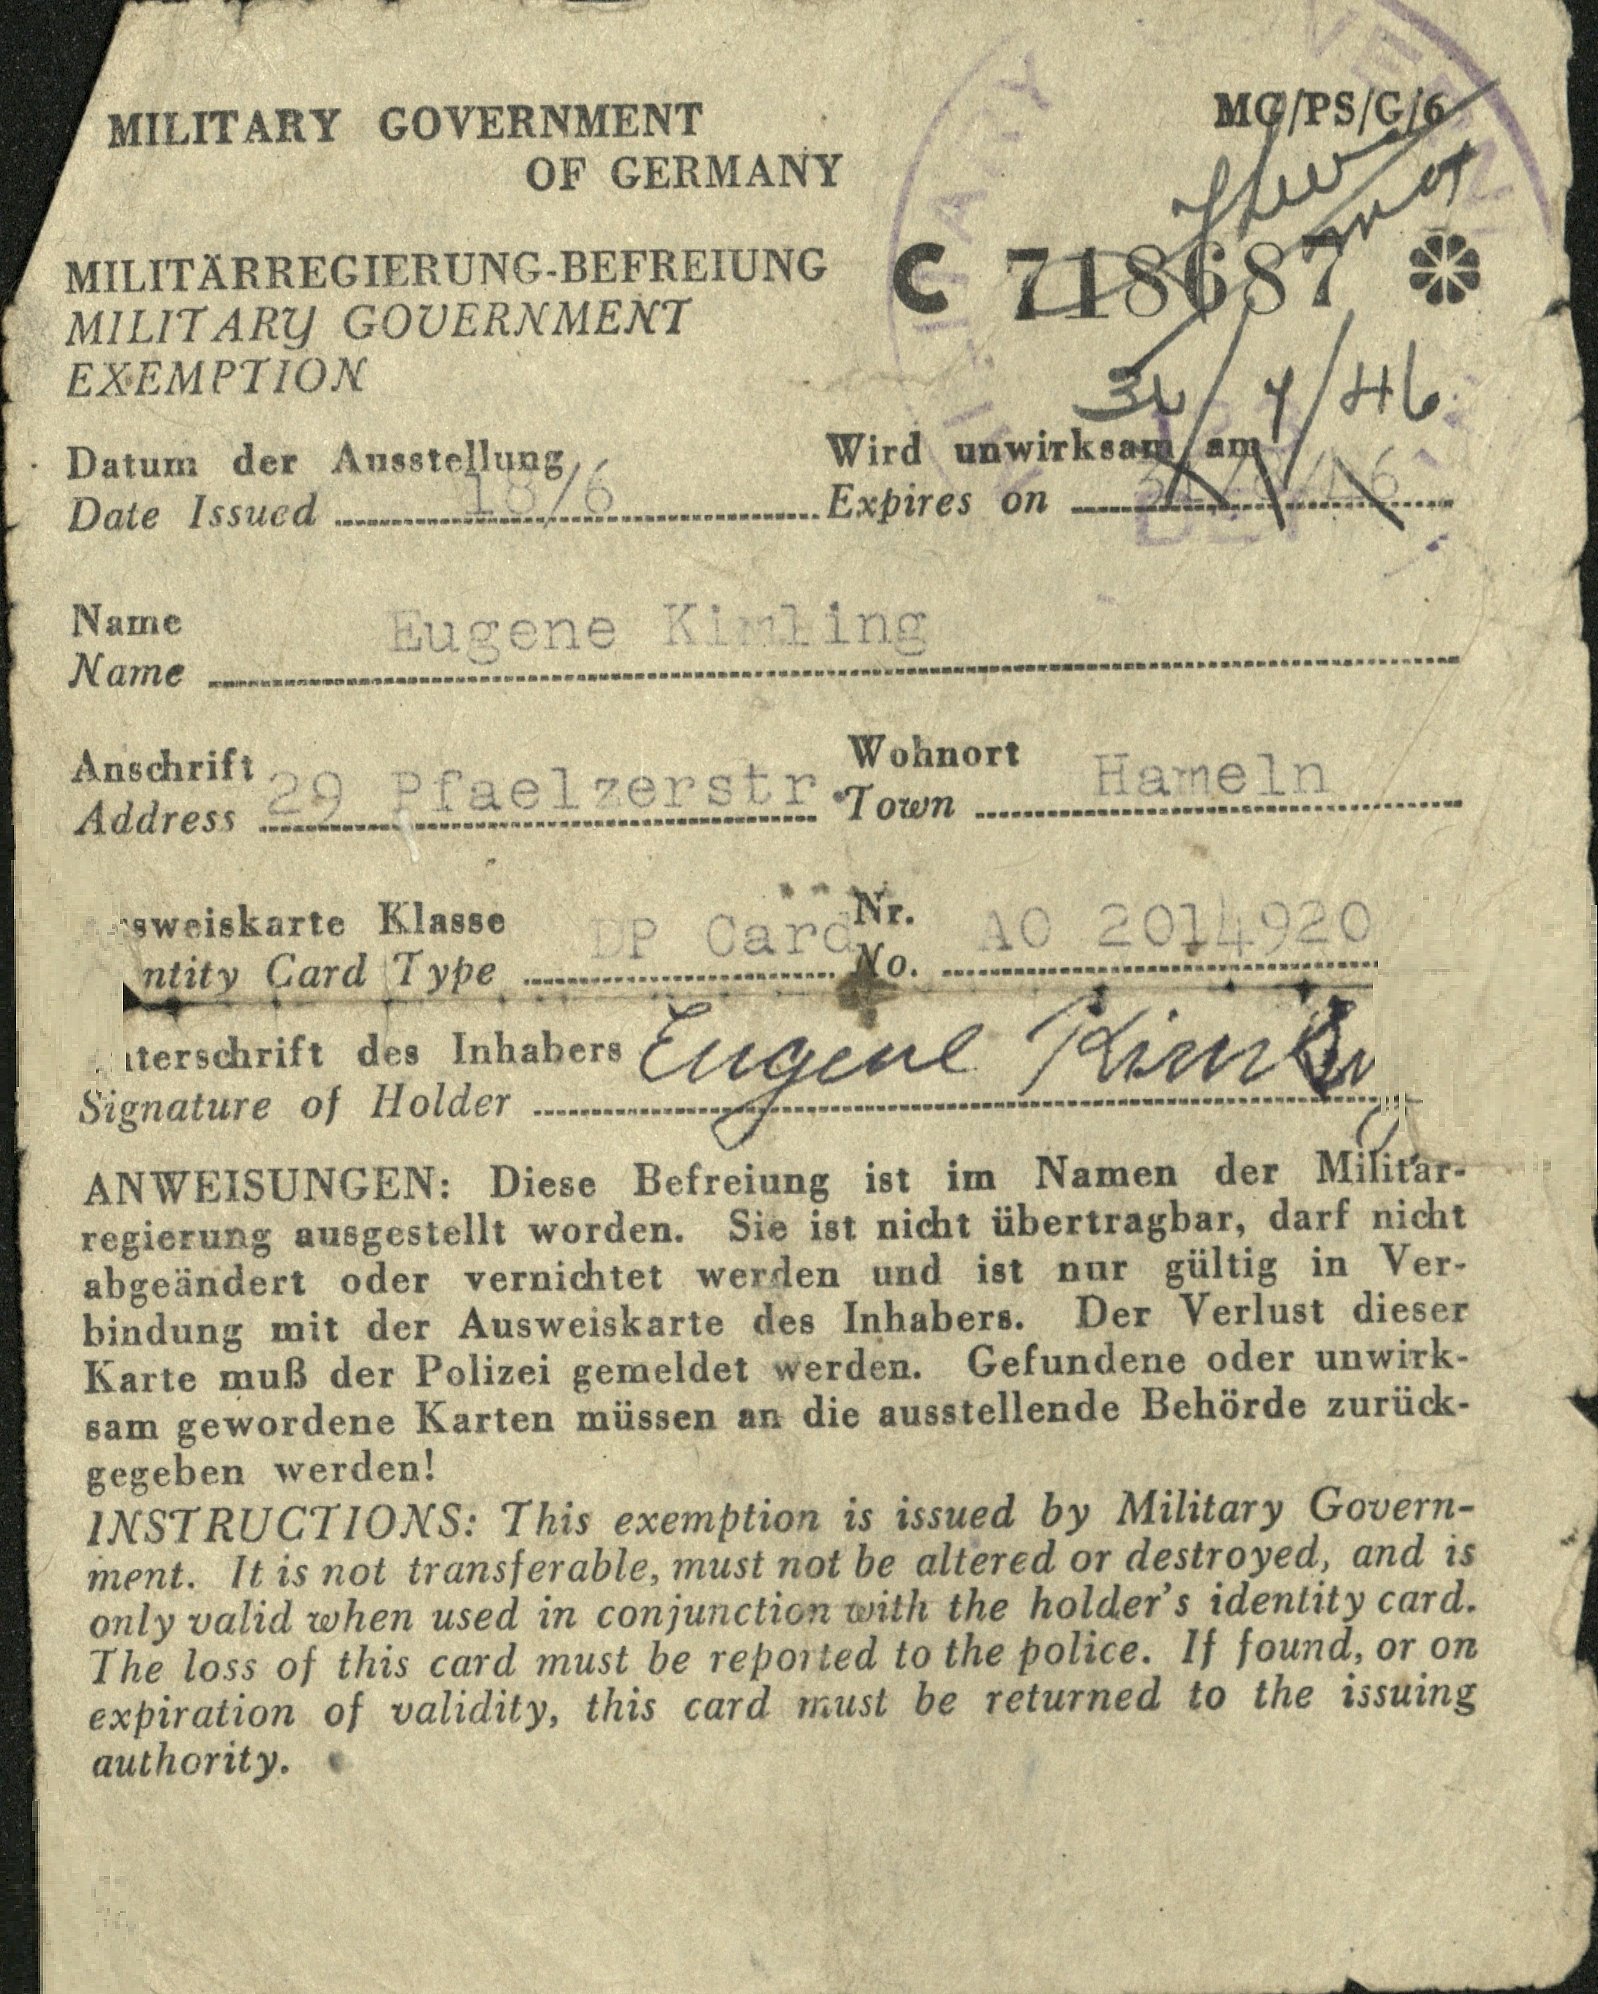 MILITARY GOVERNMENT
OF GERMANY
MG/PS/G/6
MILITÄRREGIERUNG-BEFREIUNG
MILITARY GOVERNMENT
EXEMPTION
C 718687
/7/46
Datum der Ausstellung
Date Issued 18/6
Wird unwirksam am
Expires on
Name
Name Eugene Kimling
Anschrift
Address 29 Pfaelzerstr.
Wohnort
Town Hameln
sweiskarte Klasse
ntity Card Type DP Card
Nr.
No. A0 2014920
terschrift des Inhabers
Signature of Holder Eugene
ANWEISUNGEN: Diese Befreiung ist im Namen der Militär-
regierung ausgestellt worden. Sie ist nicht übertragbar, darf nicht
abgeändert oder vernichtet werden und ist nur gültig in Ver-
bindung mit der Ausweiskarte des Inhabers. Der Verlust dieser
Karte muß der Polizei gemeldet werden. Gefundene oder unwirk-
sam gewordene Karten müssen an die ausstellende Behörde zurück-
gegeben werden!
INSTRUCTIONS: This exemption is issued by Military Govern-
ment. It is not transferable, must not be altered or destroyed, and is
only valid when used in conjunction with the holder's identity card.
The loss of this card must be reported to the police. If found, or on
expiration of validity, this card must be returned to the issuing
authority.